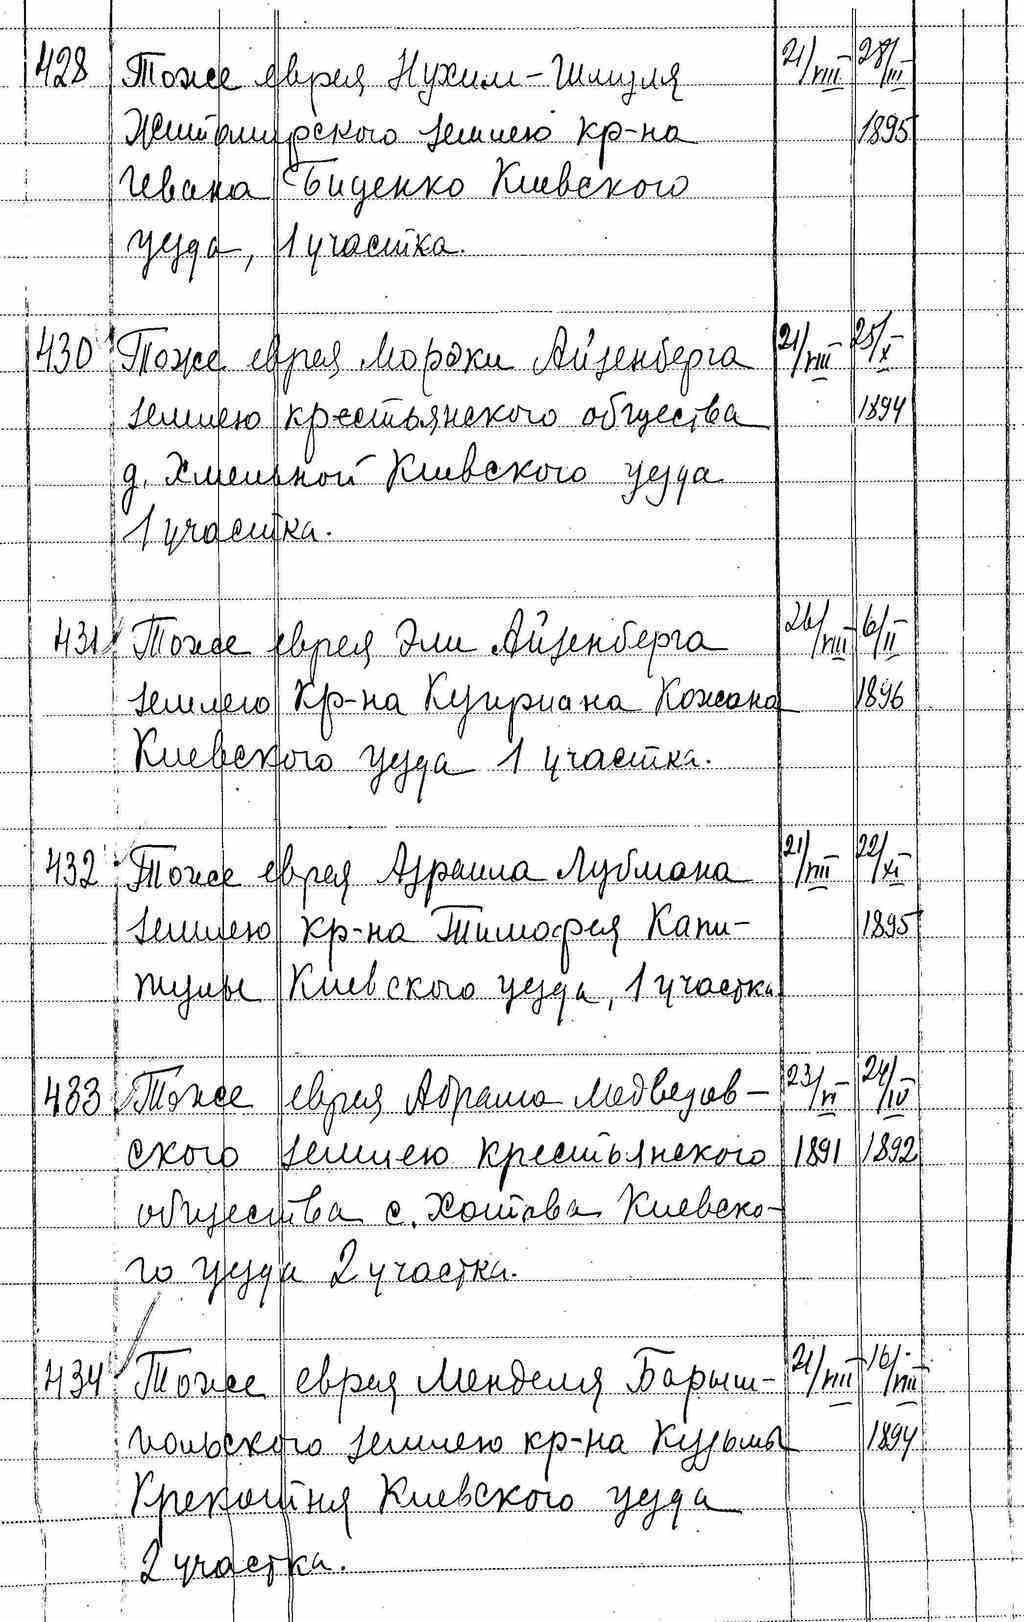 428 Тоже еврея Нухим-Шмуля 21/VIII- 28/III
Житомирского землею кр-на 1895
Ивана Биденко Киевского
уезда, 1 участка.
430 Тоже еврея Мордки Айзенберга 21/VIII 25/X-
землею крестьянского общества 1894
д. Хмельной Киевского уезда
1 участка.
431 Тоже еврея Эли Айзенберга 26/VIII 6/II-
землею кр-на Куприана Кожана 1896
Киевского уезда 1 участка.
432 Тоже еврея Азраила Лубмана 21/VIII- 22/XI-
землею кр-на Тимофея Капи-
тулы Киевского уезда, 1 участка 1895
433 Тоже еврея Абрама Медведов- 23/VI- 24/IV-
ского землею крестьянского 1891 1892
общества с. Хотова Киевско-
го уезда 2 участка.
434 Тоже еврея Менделя Барыш- 21/VIII- 16/VIII-
польского землею кр-на Кузьмы 1894
Крекотня Киевского уезда
2 участка.